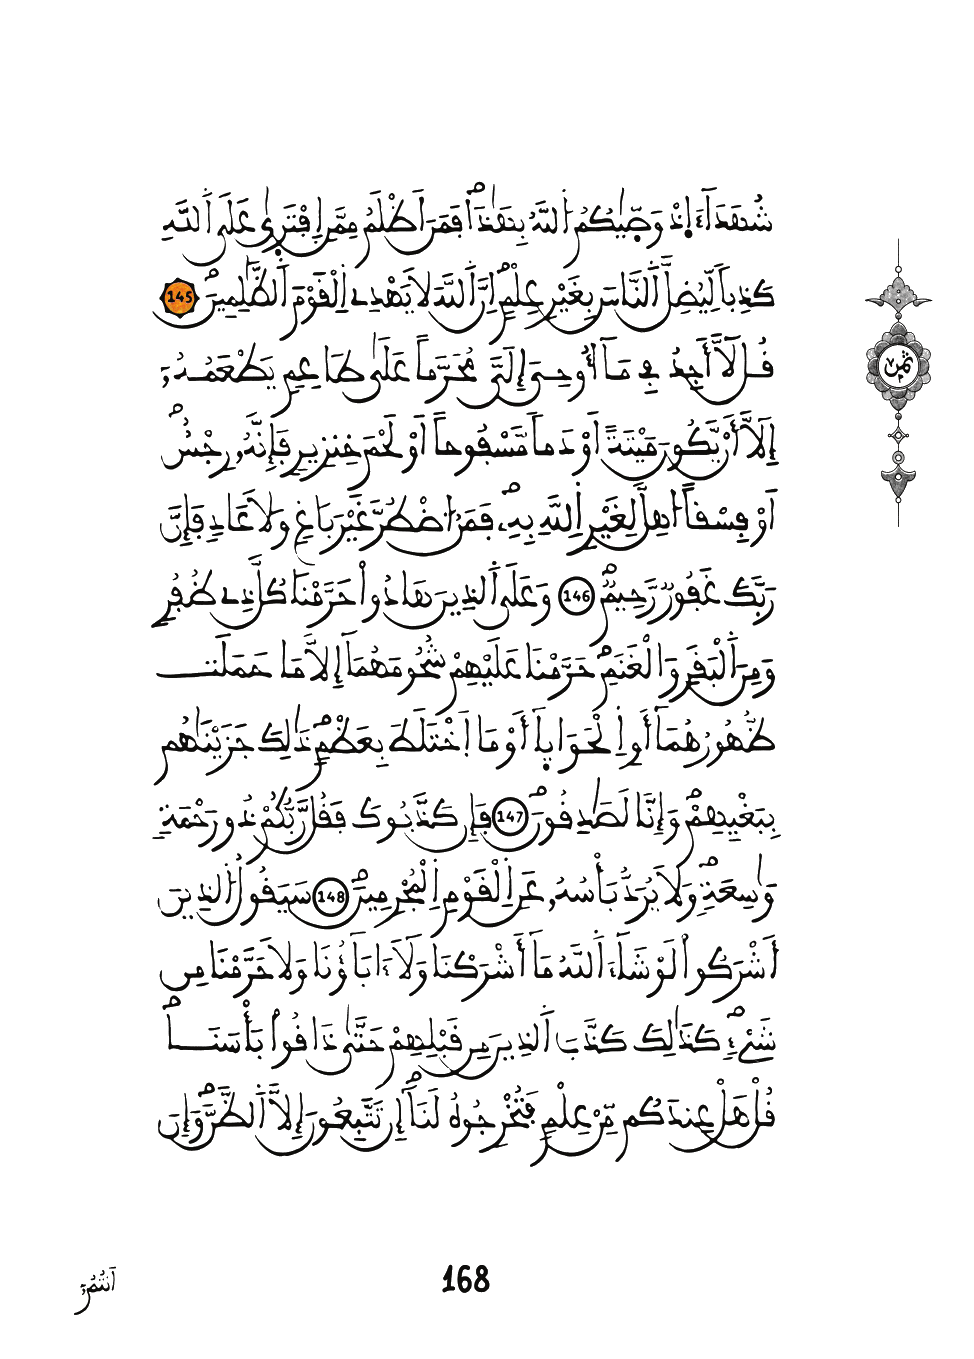 شُهَدَآءَ اِ۬ذْ وَصّ۪يٰكُمُ اُ۬للَّهُ بِهَٰذَاۖ فَمَنَ اَظْلَمُ مِمَّنِ اِ۪فْتَر۪يٰ عَلَي اَ۬للَّهِ
كَذِباٗ لِّيُضِلَّ اَ۬لنَّاسَ بِغَيْرِ عِلْمٍۖ اِنَّ اَ۬للَّهَ لَا يَهْدِے اِ۬لْقَوْمَ اَ۬لظَّٰلِمِينَۖ 145
قُل لَّآ أَجِدُ فِے مَآ أُوحِيَ إِلَيَّ مُحَرَّماً عَلَيٰ طَاعِمٖ يَطْعَمُهُۥٓ
إِلَّآ أَنْ يَّكُونَ مَيْتَةً اَوْ دَماٗ مَّسْفُوحاً اَوْ لَحْمَ خِنزِيرٖ فَإِنَّهُۥ رِجْسٌۖ
اَوْ فِسْقاً ا۟هِلَّ لِغَيْرِ اِ۬للَّهِ بِهِۦۖ فَمَنُ اُ۟ضْطُرَّ غَيْرَ بَاغٖ وَلَا عَادٖ فَإِنَّ
رَبَّكَ غَفُورٞ رَّحِيمٞۖ 146 وَعَلَي اَ۬لذِينَ هَادُواْ حَرَّمْنَا كُلَّ ذِے ظُفُرٖ
وَمِنَ اَ۬لْبَقَرِ وَالْغَنَمِۖ حَرَّمْنَا عَلَيْهِمْ شُحُومَهُمَآ إِلَّا مَا حَمَلَت
ظُّهُورُهُمَآ أَوِ اِ۬لْحَوَايَآ أَوْ مَا اَ۪خْتَلَطَ بِعَظْمٖۖ ذَٰلِكَ جَزَيْنَٰهُم
بِبَغْيِهِمْۖ وَإِنَّا لَصَٰدِقُونَۖ 147 فَإِن كَذَّبُوكَ فَقُل رَّبُّكُمْ ذُو رَحْمَةٖ
وَٰسِعَةٖۖ وَلَا يُرَدُّ بَأْسُهُۥ عَنِ اِ۬لْقَوْمِ اِ۬لْمُجْرِمِينَۖ 148 سَيَقُولُ اُ۬لذِينَ
أَشْرَكُواْ لَوْ شَآءَ اَ۬للَّهُ مَآ أَشْرَكْنَا وَلَآ ءَابَآؤُنَا وَلَا حَرَّمْنَا مِن
شَےْءٖۖ كَذَٰلِكَ كَذَّبَ اَ۬لذِينَ مِن قَبْلِهِمْ حَتَّيٰ ذَاقُواْ بَأْسَنَاۖ
قُلْ هَلْ عِندَكُم مِّنْ عِلْمٖ فَتُخْرِجُوهُ لَنَآۖ إِن تَتَّبِعُونَ إِلَّا اَ۬لظَّنَّۖ وَإِنَ
اَنتُمُۥٓ
168
ثمن